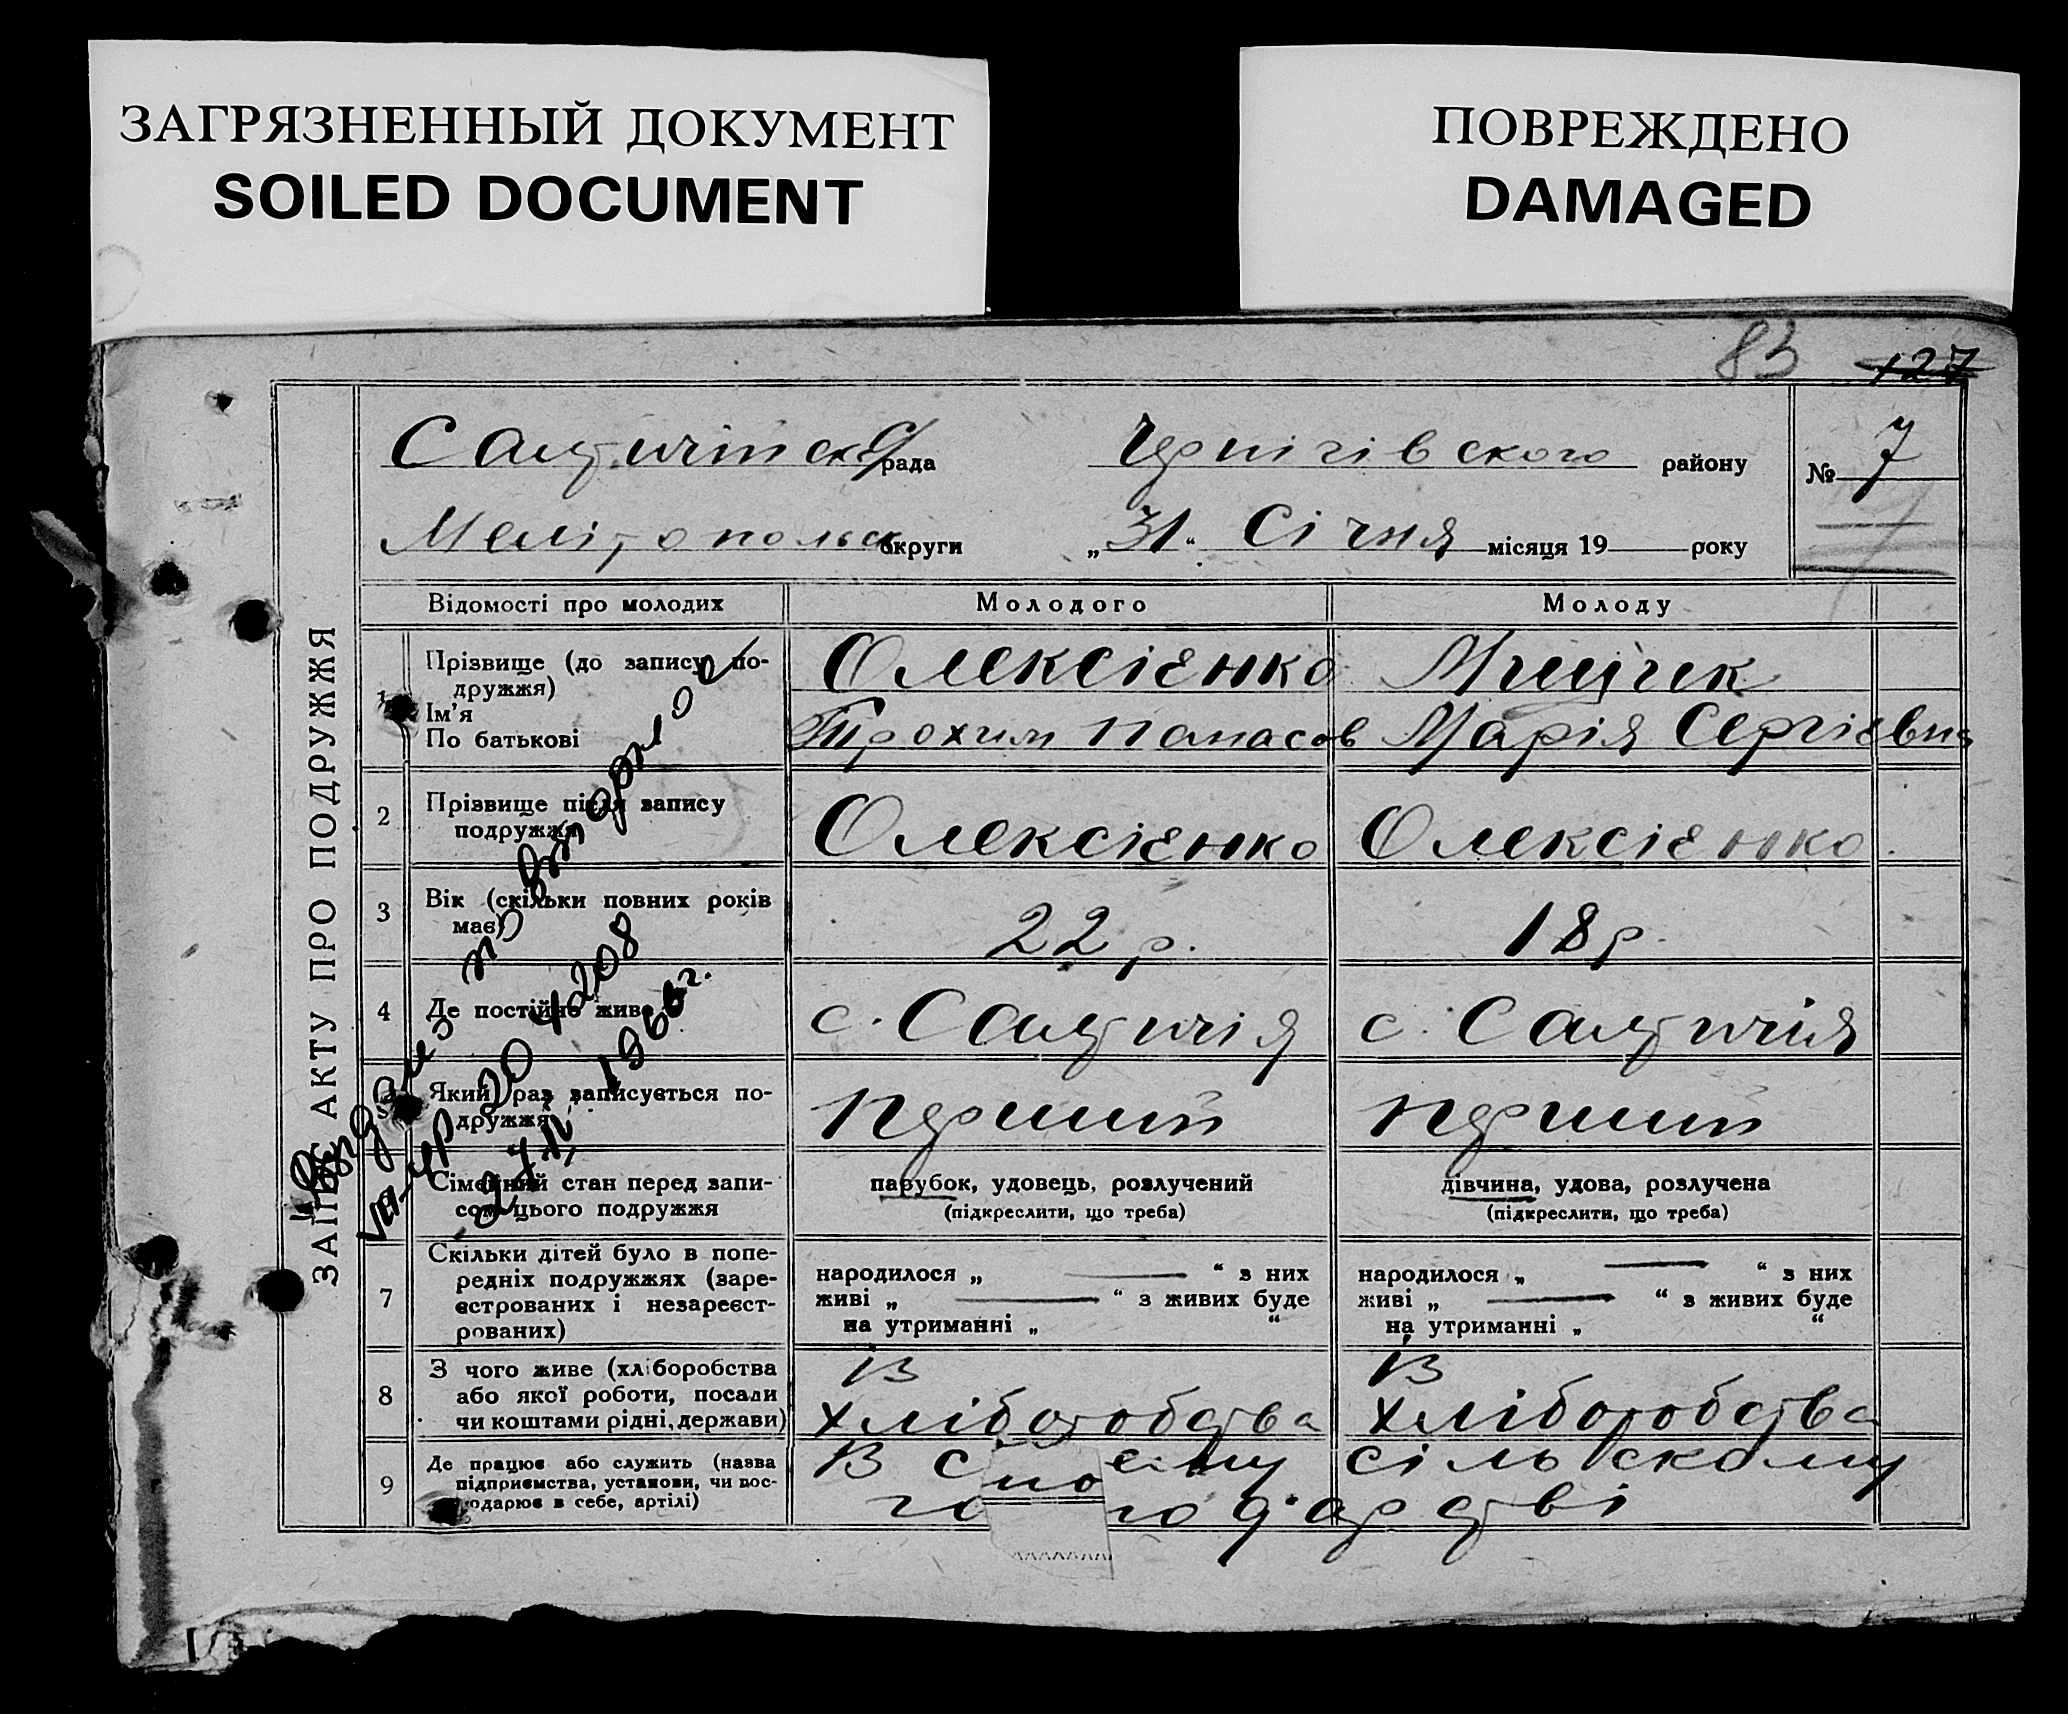 ЗАГРЯЗНЕННЫЙ ДОКУМЕНТ
SOILED DOCUMENT
ПОВРЕЖДЕНО
DAMAGED
83 127
рада Чернігівського району № 7
Мелітопольск округи „31“ Січня місяця 19 року
ЗАПИС АКТУ ПРО ПОДРУЖЖЯ
Відомості про молодих Молодого Молоду
1 Прізвище (до запису по-
дружжя) Олексієнко
Ім'я
По батькові Трохим Панасов Марія Сергієвна
2 Прізвище після запису
подружжя Олексієнко Олексієнко
3 Вік (скільки повних років
має) 22 р. 18 р.
4 Де постійно живе с. Салтичія с. Салтичія
Який раз записується по-
дружжя перший перший
Сімейний стан перед запи-
сом цього подружжя
парубок, удовець, розлучений
(підкреслити, що треба)
дівчина, удова, розлучена
(підкреслити, що треба)
7 Скільки дітей було в попе-
редніх подружжях (заре-
єстрованих і незареєст-
рованих)
народилося „ — “ з них
живі „ — “ з живих буде
на утриманні „ “
народилося „ — “ з них
живі „ — “ з живих буде
на утриманні „ “
8 З чого живе (хліборобства
або якої роботи, посади
чи коштами рідні, держави)
З
хліборобства
З
хліборобства
9 Де працює або служить (назва
підприємства, установи, чи гос-
подарює в себе, артілі)
В сільському
господарстві
Выдано повторное
20 4208
1966 г.